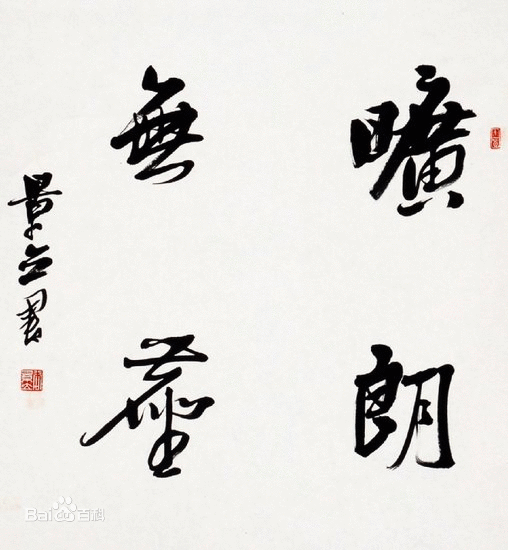 曠朗
無塵
景書
Bai百科